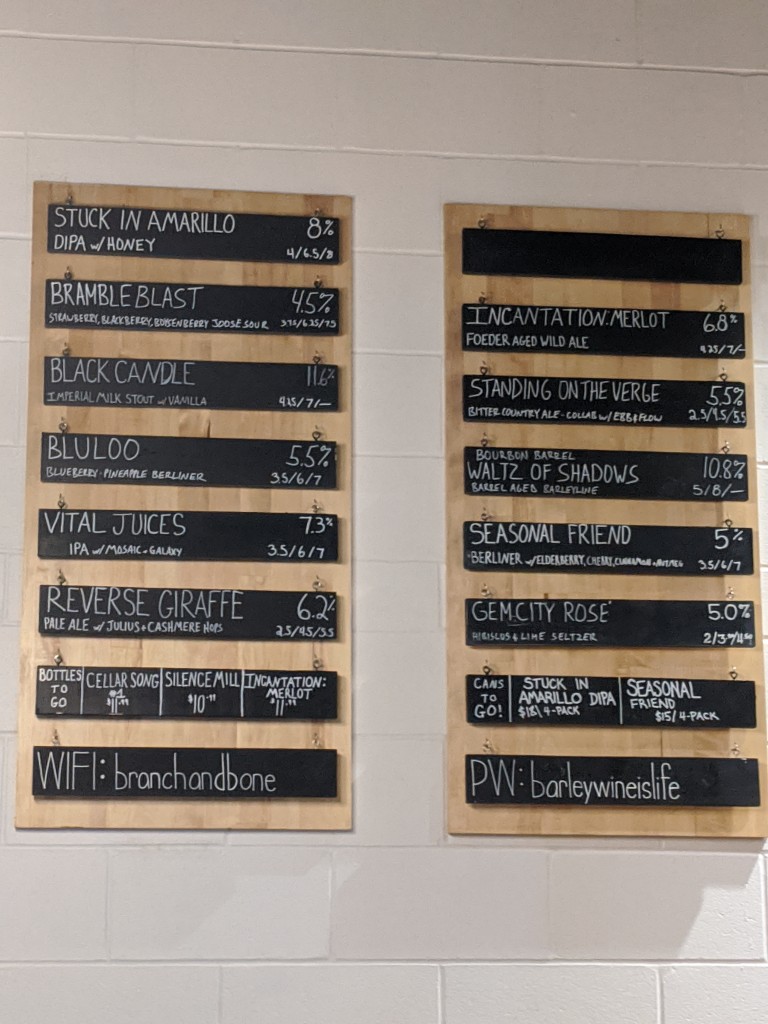 STUCK IN AMARILLO 8%
DIPA w/ HONEY 4/6.5/8
BRAMBLE BLAST 4.5%
STRAWBERRY, BLACKBERRY, BOYSENBERRY JOOSE SOUR 3.75/6.25/7.5
BLACK CANDLE 11.6%
IMPERIAL MILK STOUT w/ VANILLA 4.25/7/—
BLULOO 5.5%
BLUEBERRY-PINEAPPLE BERLINER 3.5/6/7
VITAL JUICES 7.3%
IPA w/ MOSAIC + GALAXY 3.5/6/7
REVERSE GIRAFFE 6.2%
PALE ALE w/ JULIUS + CASHMERE HOPS 2.5/4.5/5.5
BOTTLES TO GO
CELLAR SONG #1 $11.99
SILENCE MILL $10.99
INCANTATION: MERLOT $11.99
WIFI: branchandbone
INCANTATION: MERLOT 6.8%
FOEDER AGED WILD ALE 4.25/7/—
STANDING ON THE VERGE 5.5%
BITTER COUNTRY ALE - COLLAB w/ EBB & FLOW 2.5/4.5/5.5
BOURBON BARREL
WALTZ OF SHADOWS 10.8%
BARREL AGED BARLEYWINE 5/8/—
SEASONAL FRIEND 5%
BERLINER w/ ELDERBERRY, CHERRY, CINNAMON + NUTMEG 3.5/6/7
GEM CITY ROSE' 5.0%
HIBISCUS & LIME SELTZER
CANS TO GO!
STUCK IN AMARILLO DIPA $18/ 4-PACK
SEASONAL FRIEND $15/ 4-PACK
PW: barleywineislife